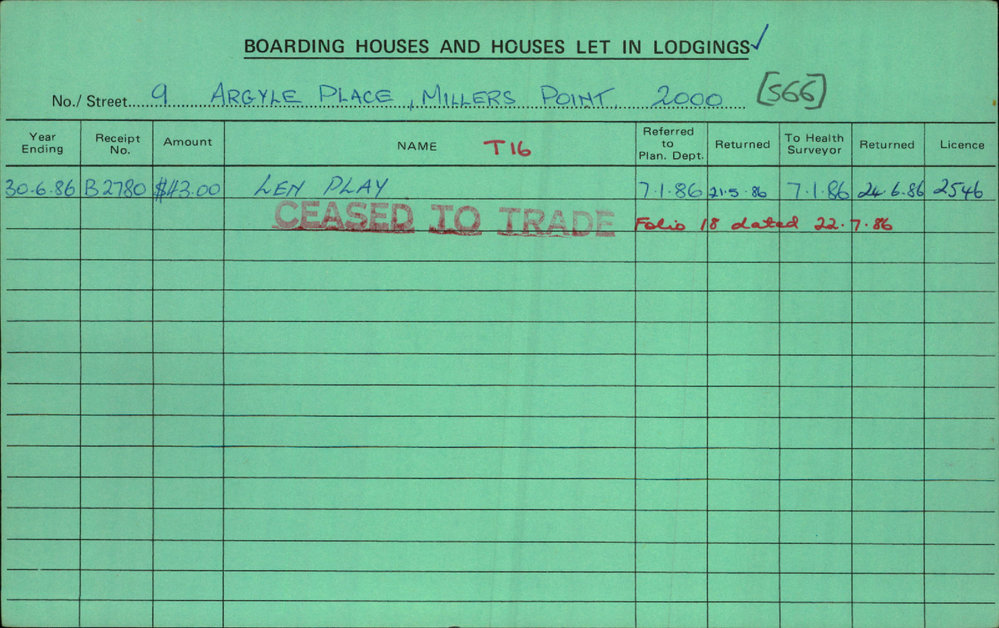 BOARDING HOUSES AND HOUSES LET IN LODGINGS ✓
No./ Street.... 9 ARGYLE PLACE, MILLERS POINT 2000 [566]
Year Ending Receipt No. Amount NAME T16 Referred to Plan. Dept. Returned To Health Surveyor Returned Licence
30.6.86 B2780 $43.00 LEN PLAY 7.1.86 21.5.86 7.1.86 24.6.86 2546
CEASED TO TRADE Folio 18 dated 22.7.86